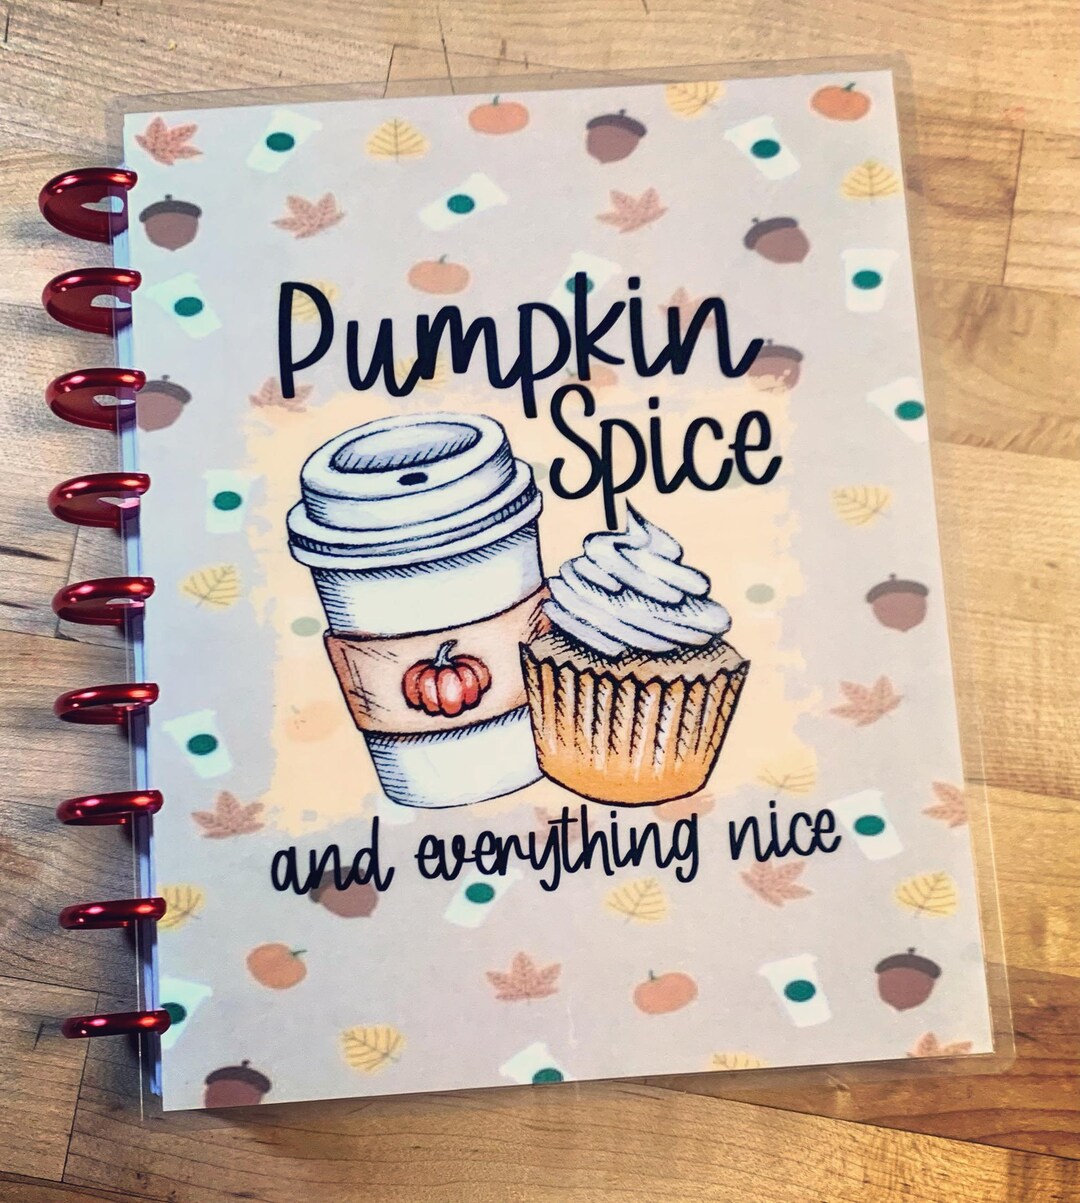 Pumpkin
Spice
and everything nice